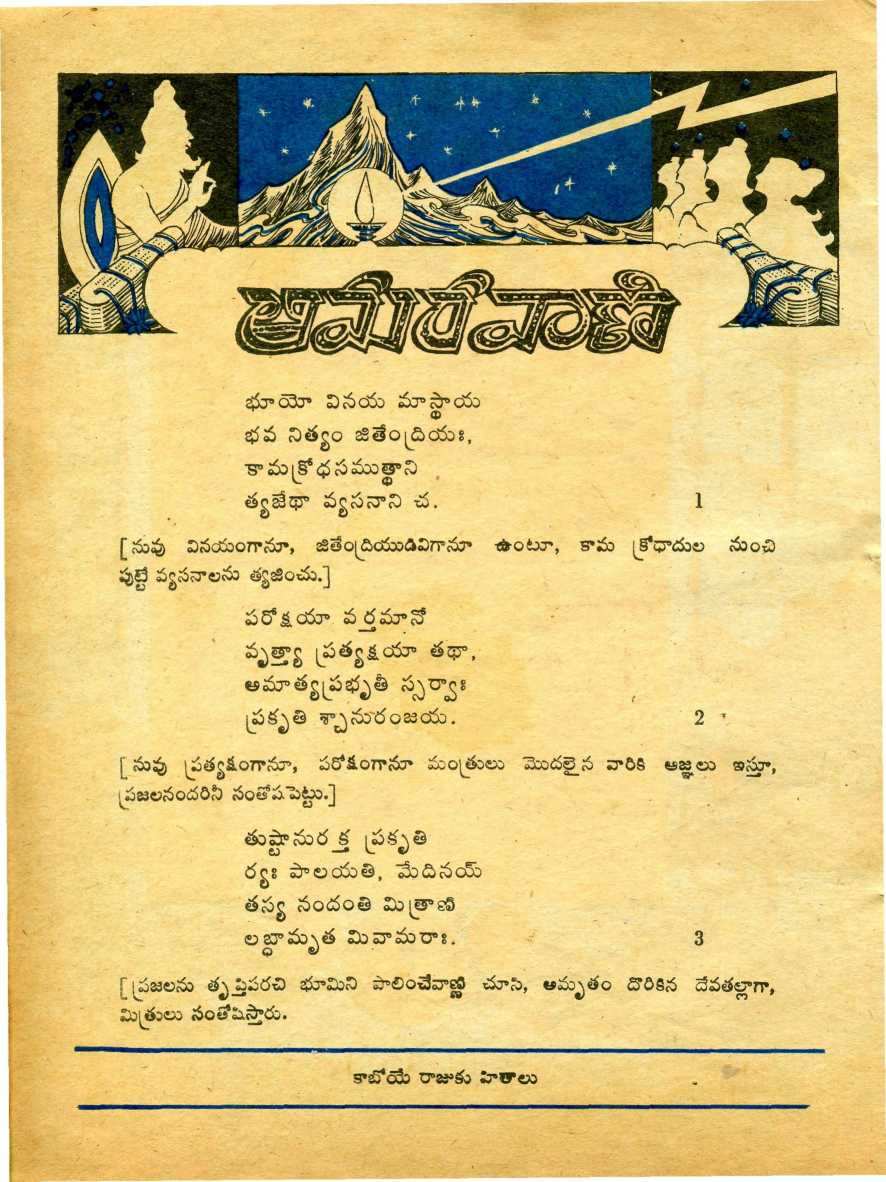 అమరవాణి
భూయో వినయ మాస్థాయ
భవ నిత్యం జితేంద్రియః,
కామక్రోధసముత్థాని
త్యజేథా వ్యసనాని చ. 1
[నువు వినయంగానూ, జితేంద్రియుడివిగానూ ఉంటూ, కామ క్రోధాదుల నుంచి
పుట్టే వ్యసనాలను త్యజించు.]
పరోక్షయా వర్తమానో
వృత్త్యా ప్రత్యక్షయా తథా,
అమాత్యప్రభృతీ స్సర్వాః
ప్రకృతి శ్చానురంజయ. 2
[నువు ప్రత్యక్షంగానూ, పరోక్షంగానూ మంత్రులు మొదలైన వారికి ఆజ్ఞలు ఇస్తూ,
ప్రజలనందరినీ సంతోషపెట్టు.]
తుష్టానురక్త ప్రకృతి
ర్యః పాలయతి, మేదినయ్
తస్య నందంతి మిత్రాణి
లబ్ధామృత మివామరాః. 3
[ప్రజలను తృప్తిపరచి భూమిని పాలించేవాణ్ణి చూసి, అమృతం దొరికిన దేవతల్లాగా,
మిత్రులు సంతోషిస్తారు.
కాబోయే రాజుకు హితాలు